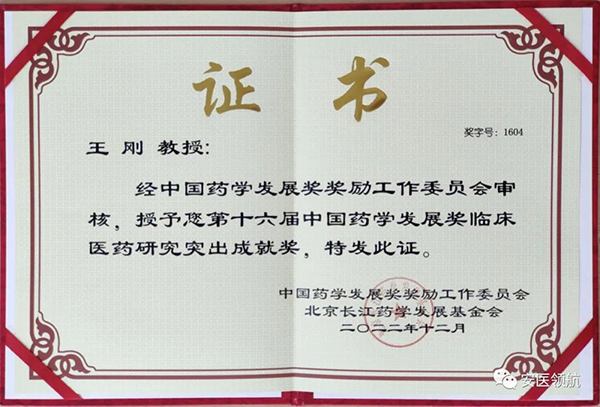 证 书
奖字号：1604
王 刚 教授：
经中国药学发展奖奖励工作委员会审
核，授予您第十六届中国药学发展奖临床
医药研究突出成就奖，特发此证。
中国药学发展奖奖励工作委员会
北京长江药学发展基金会
二〇二二年十二月
安医领航